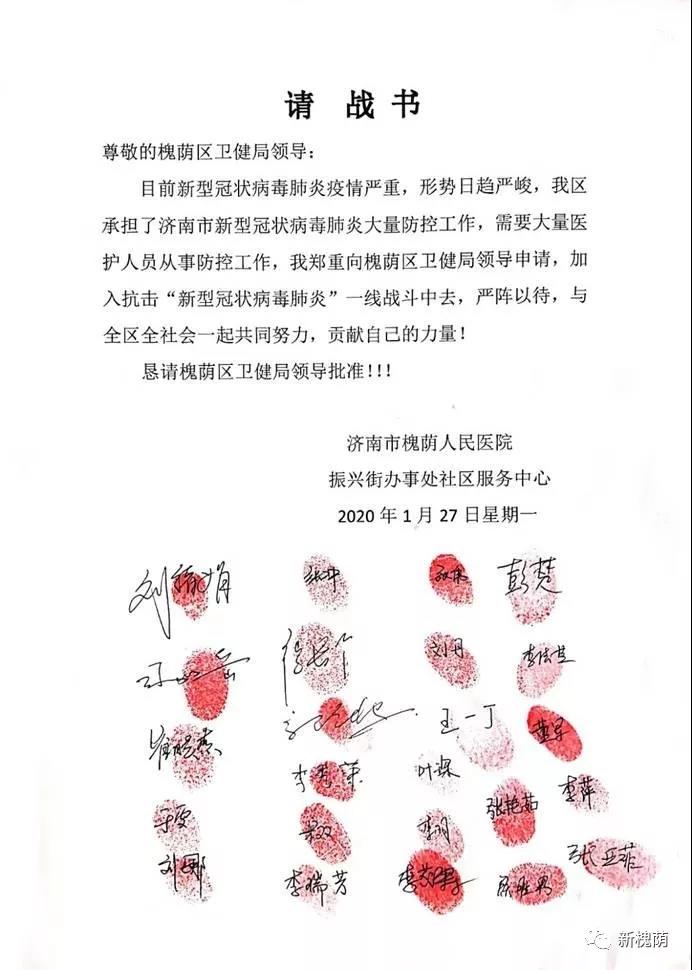 请 战 书
尊敬的槐荫区卫健局领导：
目前新型冠状病毒肺炎疫情严重，形势日趋严峻，我区
承担了济南市新型冠状病毒肺炎大量防控工作，需要大量医
护人员从事防控工作，我郑重向槐荫区卫健局领导申请，加
入抗击“新型冠状病毒肺炎”一线战斗中去，严阵以待，与
全区全社会一起共同努力，贡献自己的力量！
恳请槐荫区卫健局领导批准!!!
济南市槐荫人民医院
振兴街办事处社区服务中心
2020 年 1 月 27 日星期一
彭楚
刘丹
王一丁
黄军
李秀荣
叶琛
张艳茹
李萍
刘娜
李瑞芳
张亚菲
新槐荫